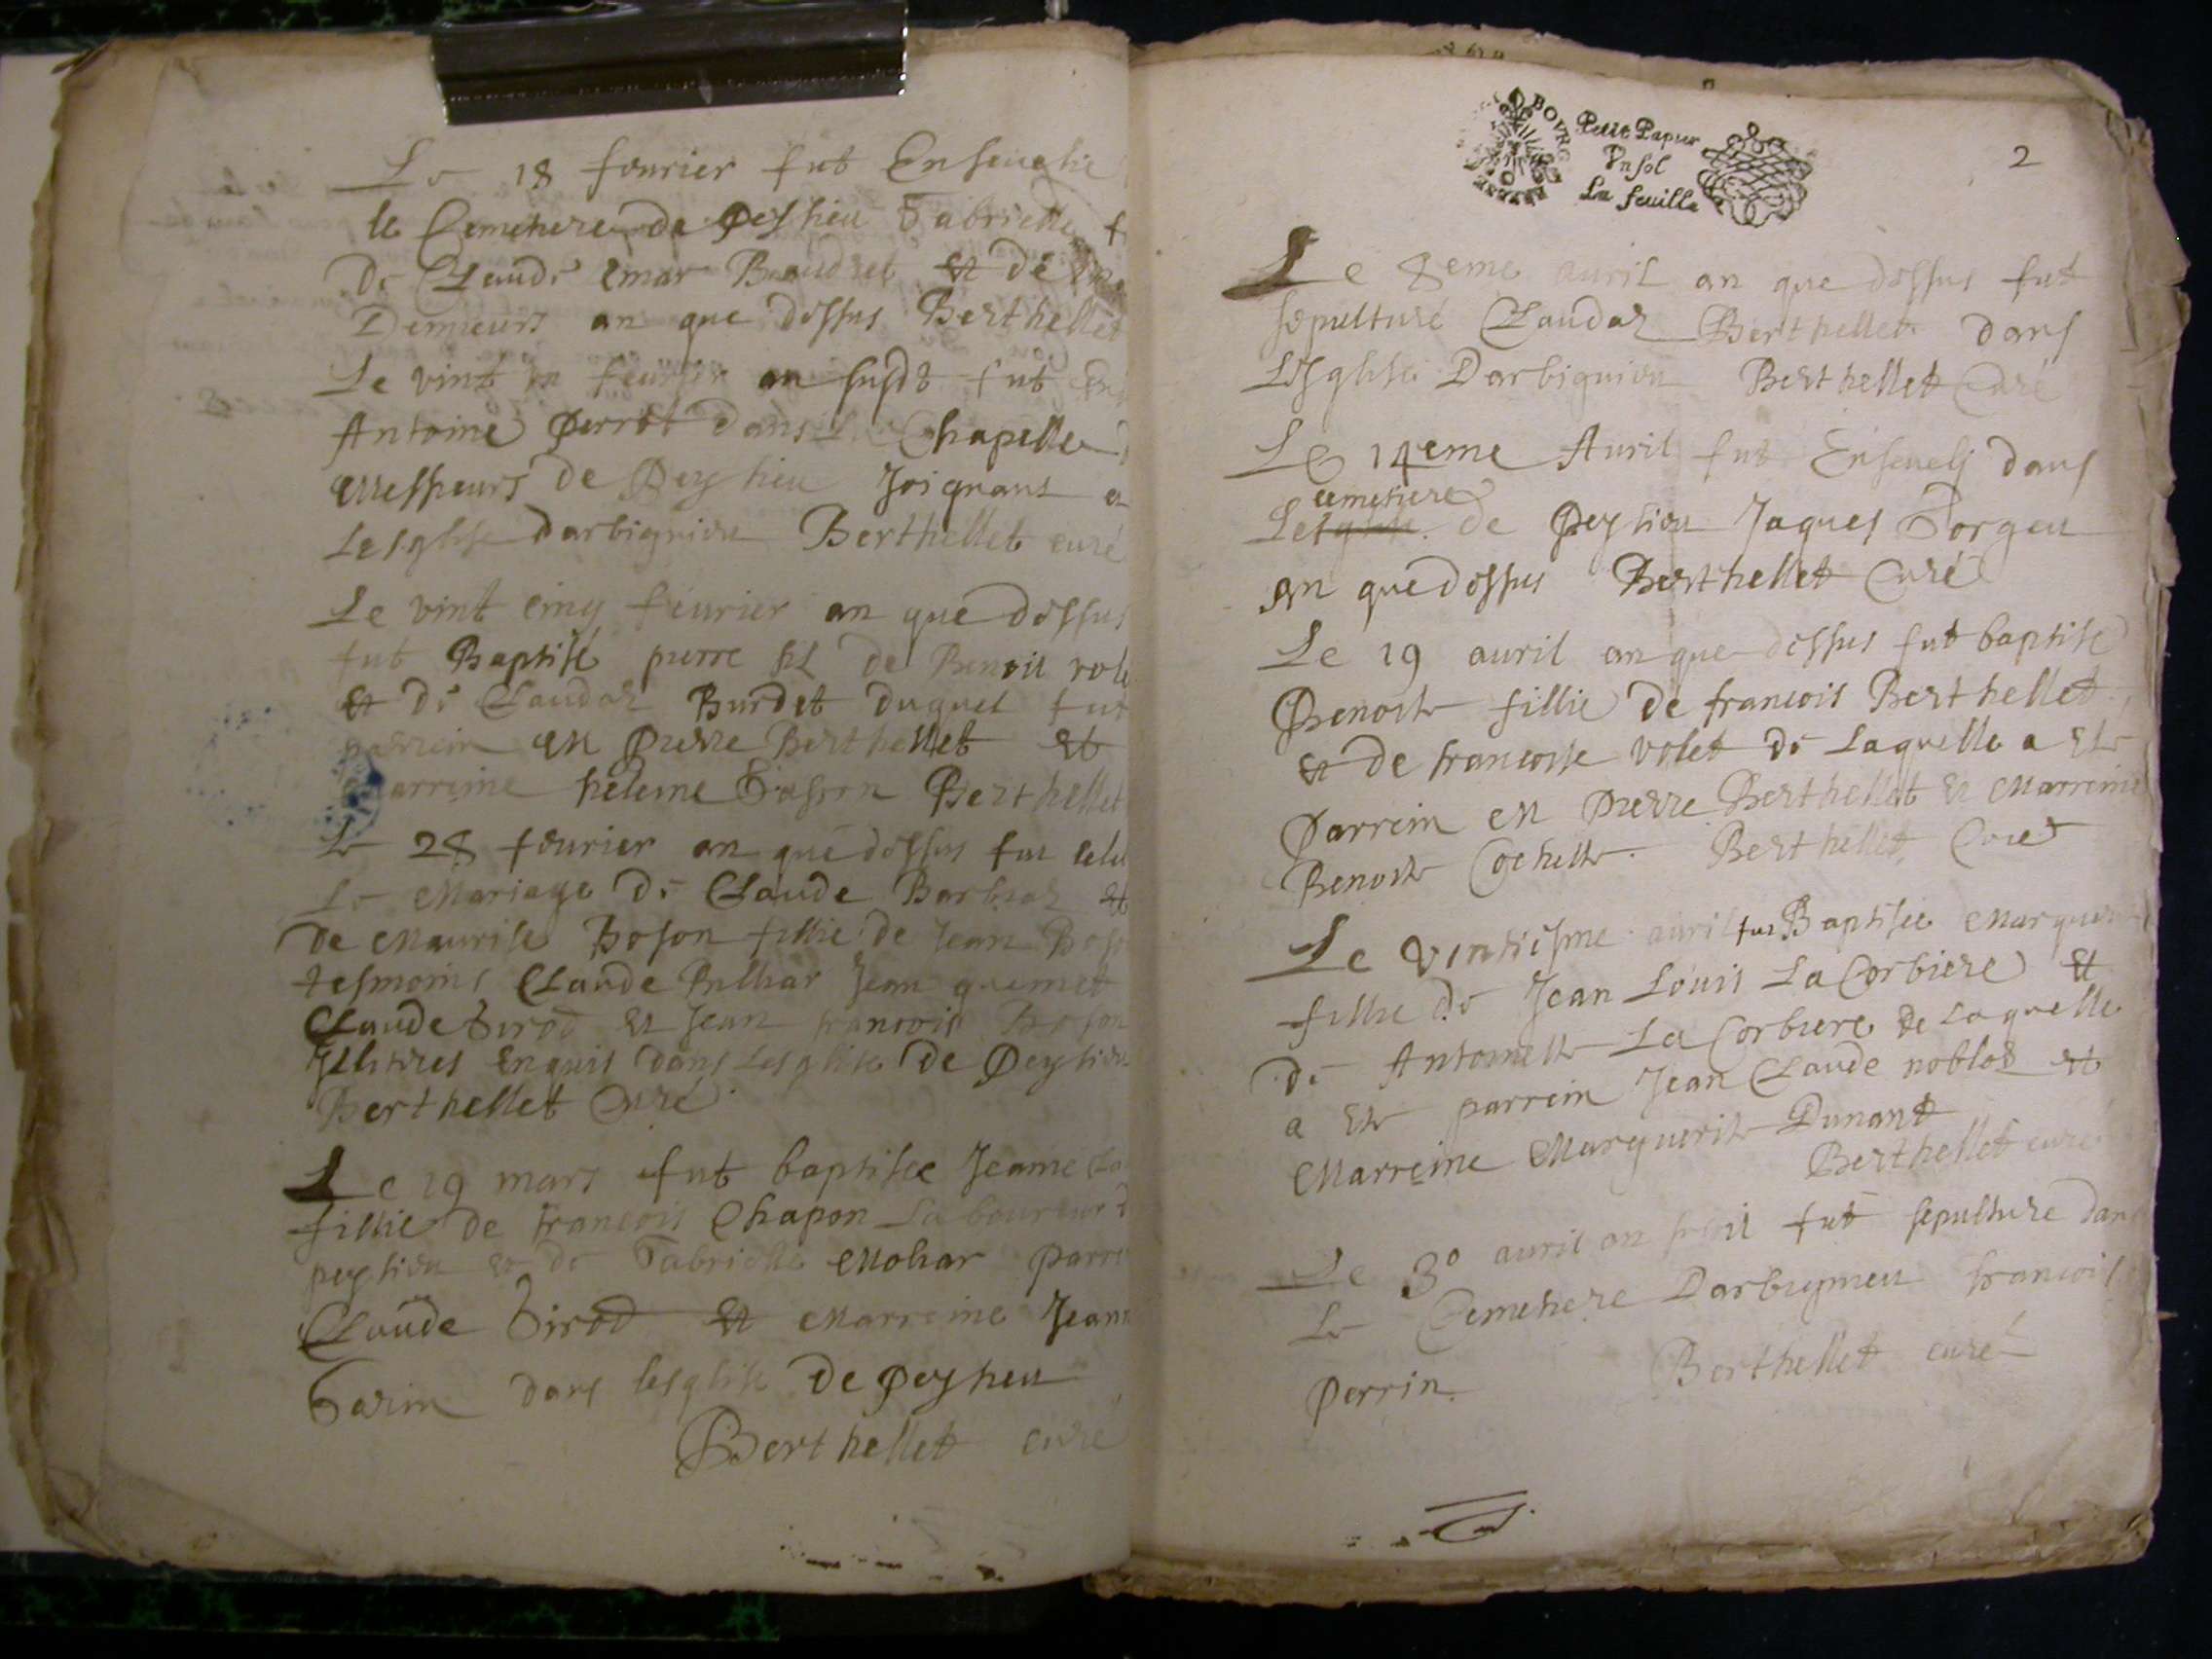 Le 18 feurier fut Enseuelie
le Cemetiere de Peyhieu Gabrielle
De Claude emar Baudret et de
Demieurs an que dessus Berthellet
Le vint feurier an susdt fut
Antoine Perrot dans Chapelle
Messieurs de Peyhieu Joignant
Lesglise darbignieu Berthellet curé
Le vint cinq feurier an que dessus
fut Baptisé pierre fil de Benoit
et de Claudaz Burdet duquel fut
parrein M Pierre Berthellet et
arreine heleine Berthellet
Le 28 feurier an que dessus fut
Le Mariage de Claude et
de Maurise Boson fillie de Jean
tesmoins Claude Jean
Claude Girod et Jean francois
Illitires enquis dans Lesglise de Peyhieu
Berthellet Curé
Le 19 mars fut baptisee Jeanne
fillie de francois Chapon Laboureur
peyhieu et de Gabrielle Mohar
Claude Girod et Marreine Jeann
Garin dans lesglise de Peyhieu
Berthellet curé
BOURG
Petit Papier
Vn sol
La feuille
2
Le 8eme auril an que dessus fut
sepulturé Claudaz Berthellet dans
Lesglise Darbignieu Berthellet Curé
Le 14eme Auril fut Enseuely dans
cemetiere
Lesglise de Peyhieu Jaques Gorgeu
an que dessus Berthellet Curé
Le 19 auril an que dessus fut baptise
Benoite fillie de francois Berthellet
et de francoise volet de Laquelle a este
Parrein M Pierre Berthellet et Marreine
Benoite Cochette. Berthellet Curé
Le vintiesme auril fut Baptisee
fillie de Jean Louis La Corbiere et
de Antoinette La Corbiere de Laquelle
a este parrein Jean Claude noblod et
Marreine Marguerite Dunant
Berthellet curé
Le 30 auril an fut sepulture dans
Le Cemetiere Darbigneu francois
Perrin. Berthellet curé